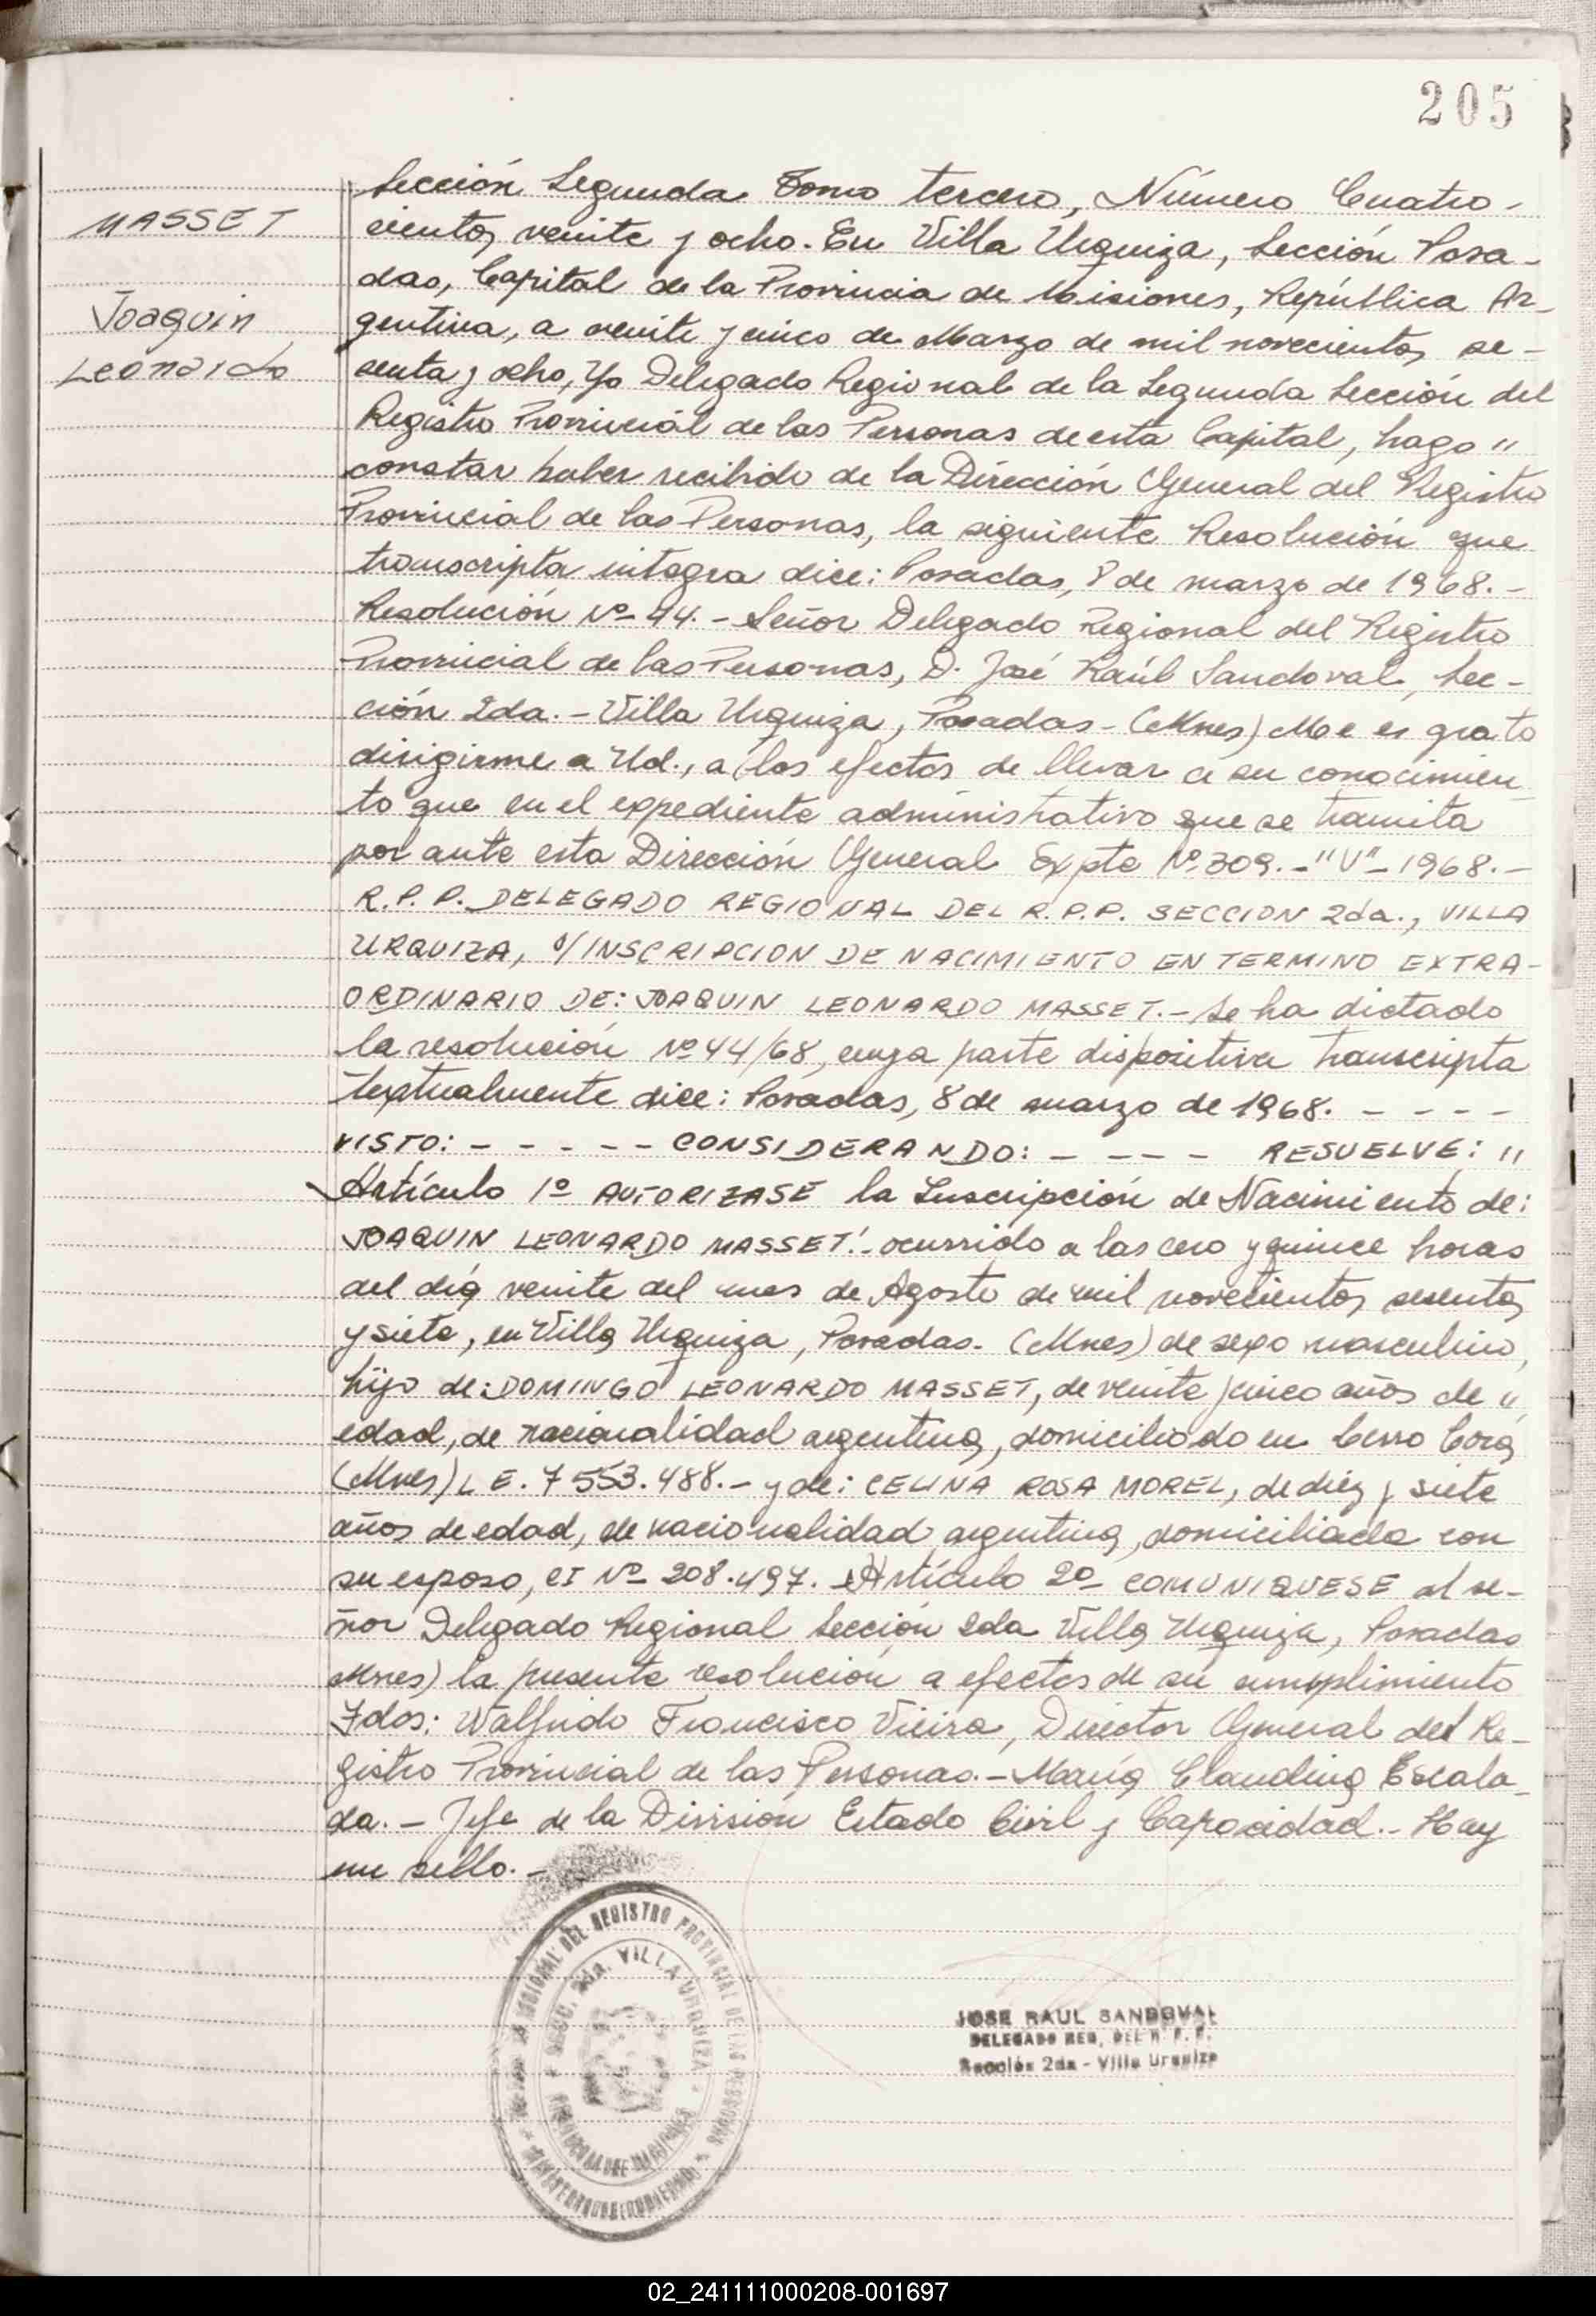 205
MASSET
Joaquin
Leonardo
Sección Segunda Tomo tercero, Número Cuatro-
cientos veinte y ocho. En Villa Urquiza, Sección Posa-
das, Capital de la Provincia de Misiones, República Ar-
gentina, a veinte y cinco de Marzo de mil novecientos se-
senta y ocho, Yo Delegado Regional de la Segunda Sección del
Registro Provincial de las Personas de esta Capital, hago "
constar haber recibido de la Dirección General del Registro
Provincial de las Personas, la siguiente Resolución que
transcripta integra dice: Posadas, 8 de marzo de 1968.-
Resolución Nº 44.- Señor Delegado Regional del Registro
Provincial de las Personas, D. José Raúl Sandoval, Sec-
ción 2da.- Villa Urquiza, Posadas- (Mnes) Me es grato
dirigirme a Ud., a los efectos de llevar a su conocimien
to que en el expediente administrativo que se tramita
por ante esta Dirección General Expte Nº 309.-"V"-1968.-
R.P.P. DELEGADO REGIONAL DEL R.P.P. SECCION 2da., VILLA
URQUIZA, s/INSCRIPCION DE NACIMIENTO EN TERMINO EXTRA-
ORDINARIO DE: JOAQUIN LEONARDO MASSET.- Se ha dictado
la resolución Nº 44/68, cuya parte dispositiva transcripta
textualmente dice: Posadas, 8 de marzo de 1968. - - - -
VISTO: - - - - - CONSIDERANDO: - - - - RESUELVE: "
Artículo 1º AUTORIZASE la Inscripción de Nacimiento de:
JOAQUIN LEONARDO MASSET.- ocurrido a las cero y quince horas
del día veinte del mes de Agosto de mil novecientos sesenta
y siete, en Villa Urquiza, Posadas. (Mnes) de sexo masculino,
hijo de: DOMINGO LEONARDO MASSET, de veinte y cinco años de "
edad, de nacionalidad argentina, domiciliado en Cerro Cora
(Mnes) L E. 7 553.488.- y de: CELINA ROSA MOREL, de diez y siete
años de edad, de nacionalidad argentina, domiciliada con
su esposo, CI Nº 208.497. Artículo 2º COMUNIQUESE al se-
ñor Delegado Regional Sección 2da Villa Urquiza, Posadas
Mnes) la presente resolución a efectos de su cumplimiento
Fdos: Walfrido Francisco Vieira, Director General del Re-
gistro Provincial de las Personas.- María Claudina Escala
da.- Jefe de la División Estado Civil y Capacidad.- Hay
un sello.-
REGIONAL DEL REGISTRO PROVINCIAL DE LAS PERSONAS
SECC. 2da. VILLA URQUIZA
JOSE RAUL SANDOVAL
DELEGADO REG. DEL R. P. P.
Sección 2da - Villa Urquiza
02_241111000208-001697